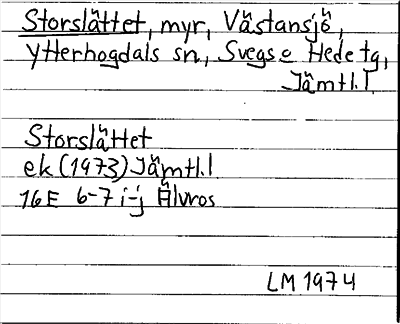 Storslättet, myr, Västansjö,
Ytterhogdals sn., Svegs o Hede tg,
Jämtl.l.
Storslättet
ek (1973) Jämtl.l
16E 6-7 i-j Älvros
LM 1974